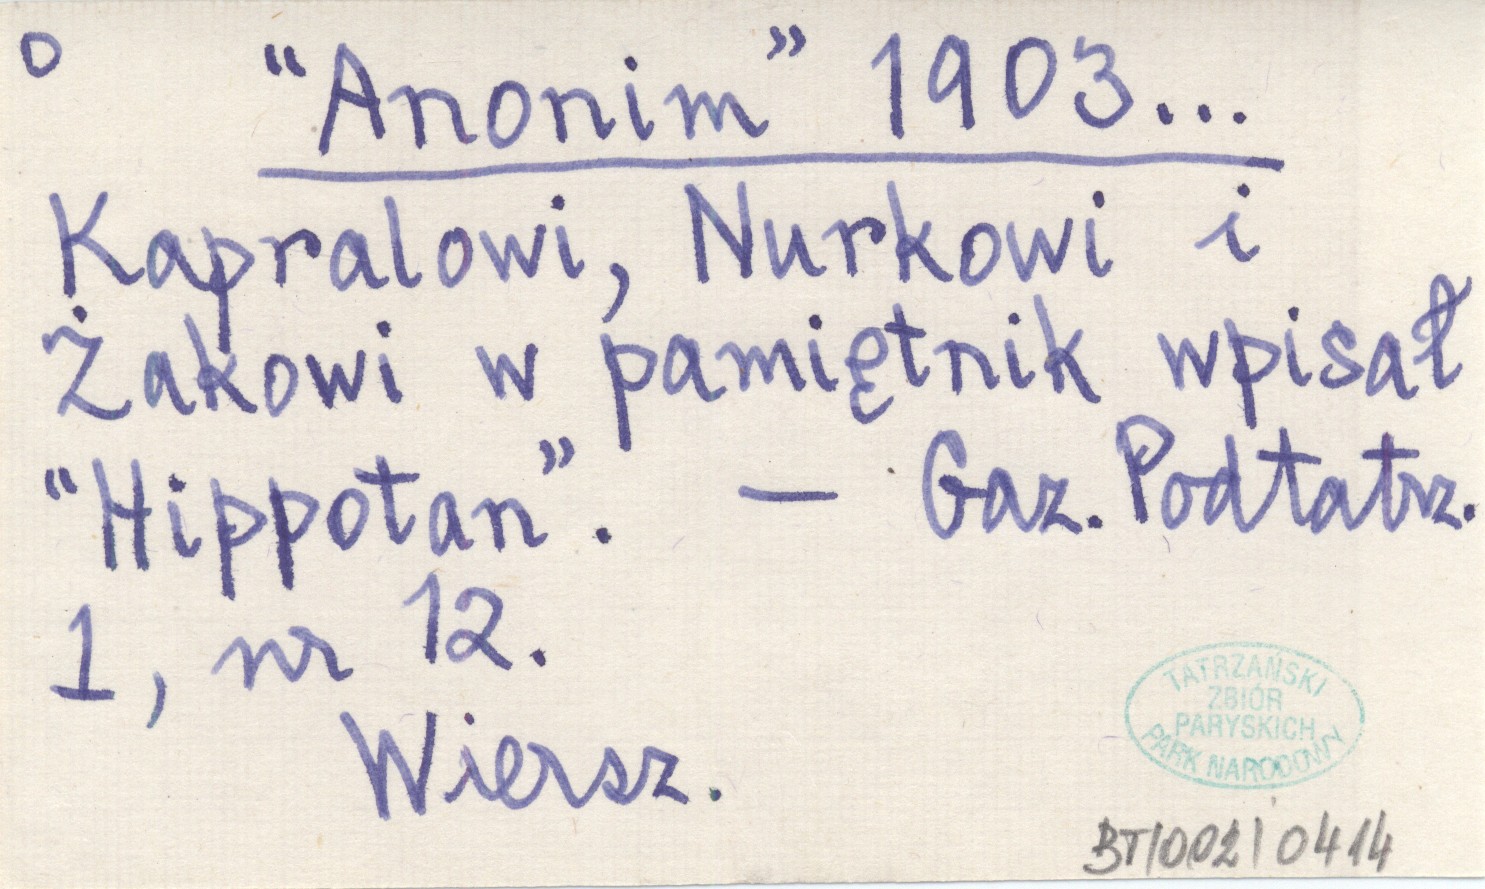 o "Anonim" 1903...
Kapralowi, Nurkowi i
Żakowi w pamiętnik wpisał
"Hippotan". — Gaz. Podtatrz.
1, nr 12.
Wiersz.
TATRZAŃSKI
ZBIÓR
PARYSKICH
PARK NARODOWY
BT/002/0414